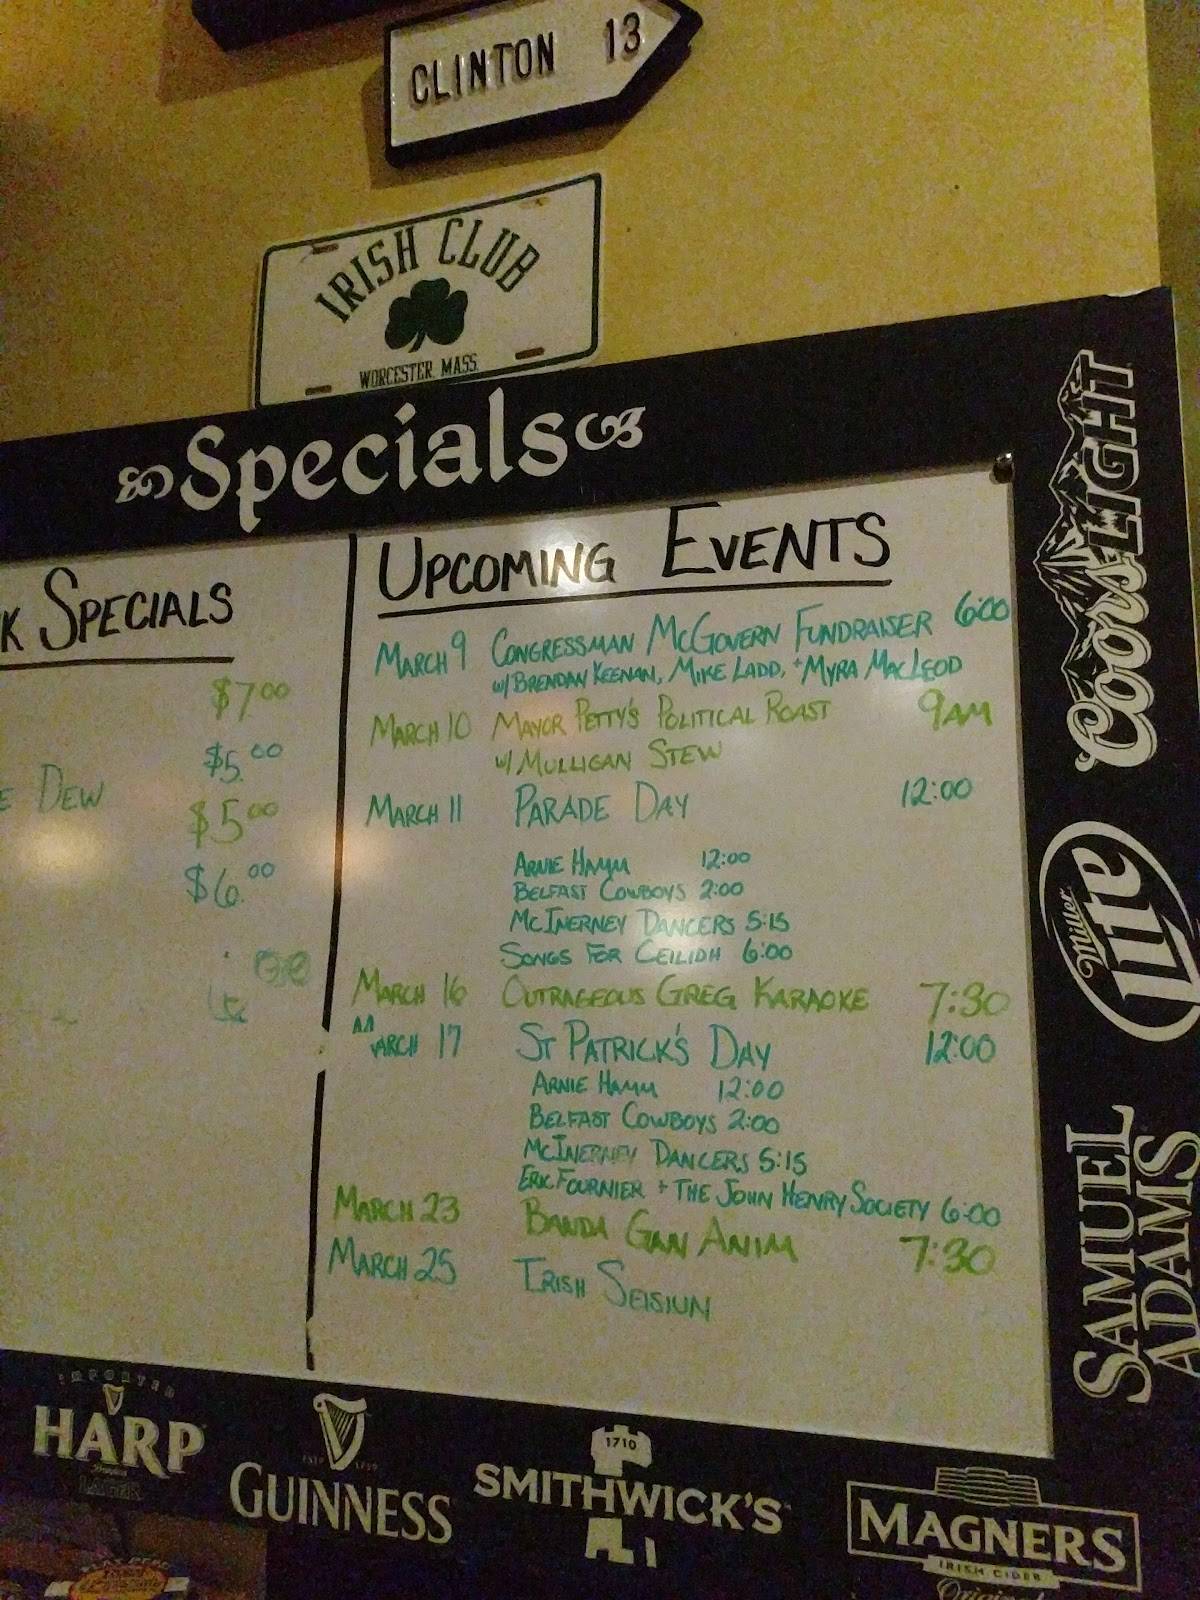 CLINTON 13
IRISH CLUB
WORCESTER, MASS.
Specials
K SPECIALS
$7.00
$5.00
E DEW
$5.00
$6.00
UPCOMING EVENTS
MARCH 9 CONGRESSMAN MCGOVERN FUNDRAISER 6:00
W/ BRENDAN KEENAN, MIKE LADD, + MYRA MACLEOD
MARCH 10 MAYOR PETTY'S POLITICAL ROAST 9AM
W/ MULLIGAN STEW
MARCH 11 PARADE DAY 12:00
ARNIE HAMM 12:00
BELFAST COWBOYS 2:00
MCINERNEY DANCERS 5:15
SONGS FOR CEILIDH 6:00
MARCH 16 OUTRAGEOUS GREG KARAOKE 7:30
MARCH 17 ST PATRICK'S DAY 12:00
ARNIE HAMM 12:00
BELFAST COWBOYS 2:00
MCINERNEY DANCERS 5:15
ERIC FOURNIER + THE JOHN HENRY SOCIETY 6:00
MARCH 23 BANDA GAN AINM 7:30
MARCH 25 IRISH SEISIUN
Coors LIGHT
Miller Lite
SAMUEL ADAMS
IMPORTED
HARP
LAGER
ESTD 1759
GUINNESS
1710
SMITHWICK'S
MAGNERS
IRISH CIDER
Original